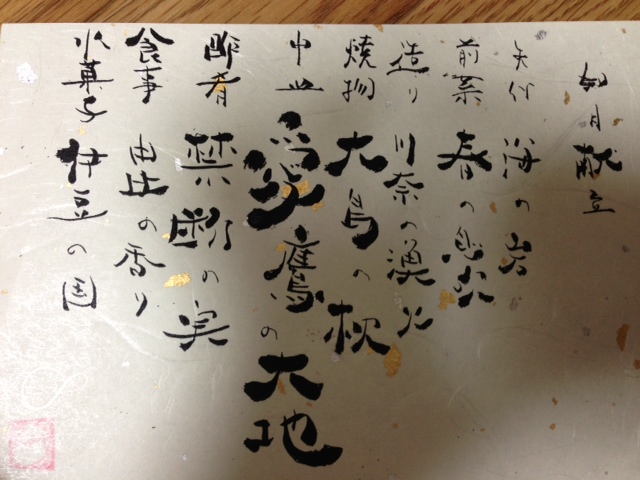 如月献立
先付 海の岩
前菜 春の息吹
造り 川奈の漁火
焼物 大島の
中皿 愛鷹の大地
酢肴 禁断の実
食事 由比の香り
水菓子 伊豆の国